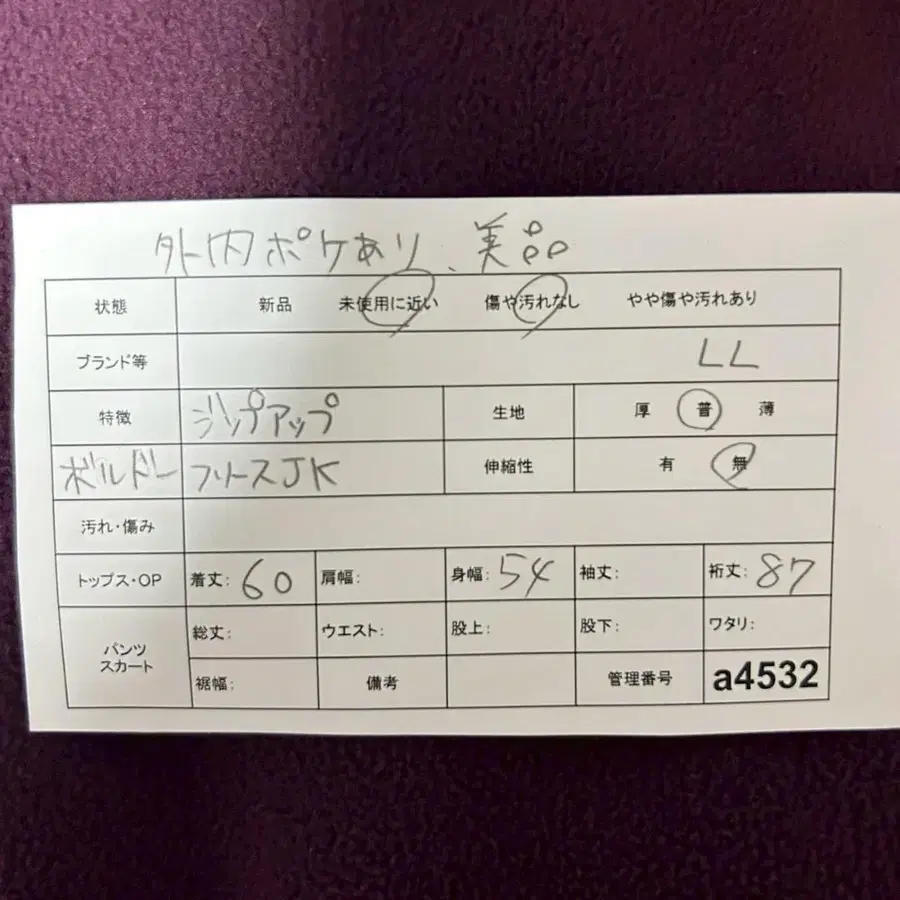 外内ポケあり、美品
状態 新品 未使用に近い 傷や汚れなし やや傷や汚れあり
ブランド等 LL
特徴 ジップアップ 生地 厚 普 薄
ボルドー フリースJK 伸縮性 有 無
汚れ・傷み
トップス・OP 着丈: 60 肩幅: 身幅: 54 袖丈: 裄丈: 87
パンツ スカート 総丈: ウエスト: 股上: 股下: ワタリ:
裾幅: 備考 管理番号 a4532